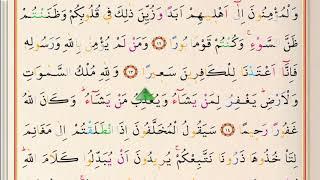 وَالْمُؤْمِنُونَ إِلَىٰ أَهْلِيهِمْ أَبَدًا وَزُيِّنَ ذَٰلِكَ فِي قُلُوبِكُمْ وَظَنَنْتُمْ
ظَنَّ السَّوْءِ وَكُنْتُمْ قَوْمًا بُورًا ﴿١٢﴾ وَمَنْ لَمْ يُؤْمِنْ بِاللَّهِ وَرَسُولِهِ
فَإِنَّا أَعْتَدْنَا لِلْكَافِرِينَ سَعِيرًا ﴿١٣﴾ وَلِلَّهِ مُلْكُ السَّمَٰوَاتِ
وَالْأَرْضِ يَغْفِرُ لِمَنْ يَشَاءُ وَيُعَذِّبُ مَنْ يَشَاءُ وَكَانَ اللَّهُ
غَفُورًا رَحِيمًا ﴿١٤﴾ سَيَقُولُ الْمُخَلَّفُونَ إِذَا انْطَلَقْتُمْ إِلَىٰ مَغَانِمَ
لِتَأْخُذُوهَا ذَرُونَا نَتَّبِعْكُمْ يُرِيدُونَ أَنْ يُبَدِّلُوا كَلَامَ اللَّهِ